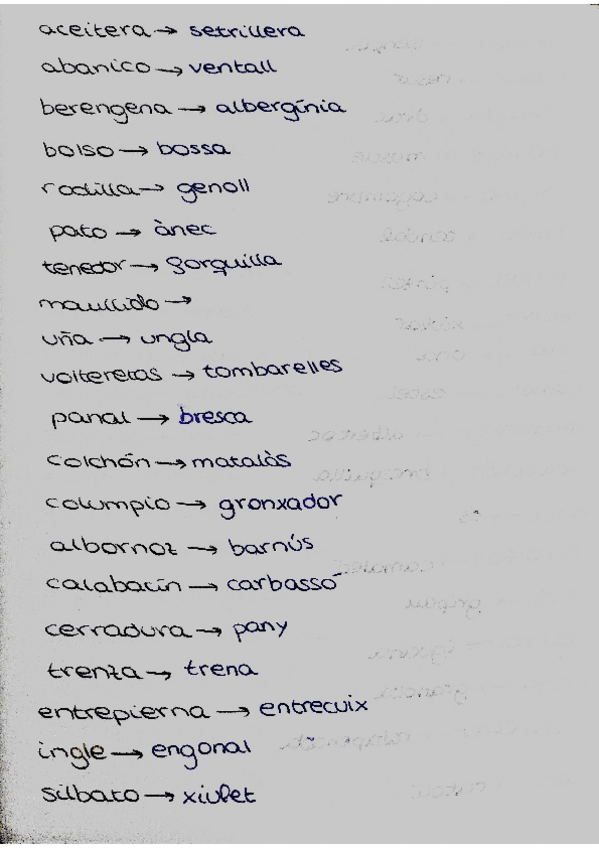 aceitera → setrillera
abanico → ventall
berengena → albergínia
bolso → bossa
rodilla → genoll
pato → ànec
tenedor → forquilla
maullido →
uña → ungla
volteretas → tombarelles
panal → bresca
colchón → matalàs
columpio → gronxador
albornoz → barnús
calabacín → carbassó
cerradura → pany
trenza → trena
entrepierna → entrecuix
ingle → engonal
silbato → xiulet